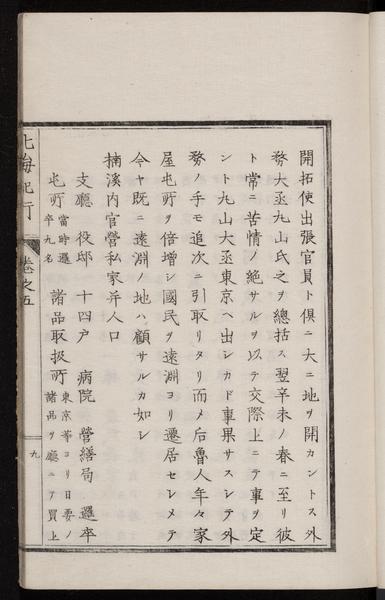 開拓使出張官員ト倶ニ大ニ地ヲ開カントス外
務大丞丸山氏之ヲ總括ス翌辛未ノ春ニ至リ彼
ト常ニ苦情ノ絶サルヲ以テ交際上ニテ事ヲ定
ント丸山大丞東京ヘ出シカド事果サスシテ外
務ノ手モ追次ニ引取リタリ而メ后魯人年々家
屋屯所ヲ倍増シ國民ヲ遠淵ヨリ遷居セシメテ
今ヤ既ニ遠淵ノ地ハ顧サルカ如シ
楠溪内官營私家并人口
支廳 役邸 十四戸 病院 營繕局 邏卒
屯所 當時邏
卒九名 諸品取扱所 東京等ヨリ日要ノ
諸品ヲ廳ニテ買上
北海紀行 卷之五 九